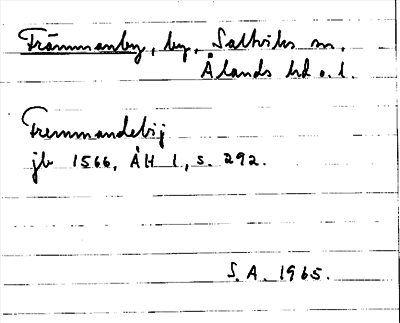 Främmanby, by, Saltviks sn,
Ålands hd o. l.
Fremmandebij
jb 1566, ÅH 1, s. 292.
S. A. 1965.